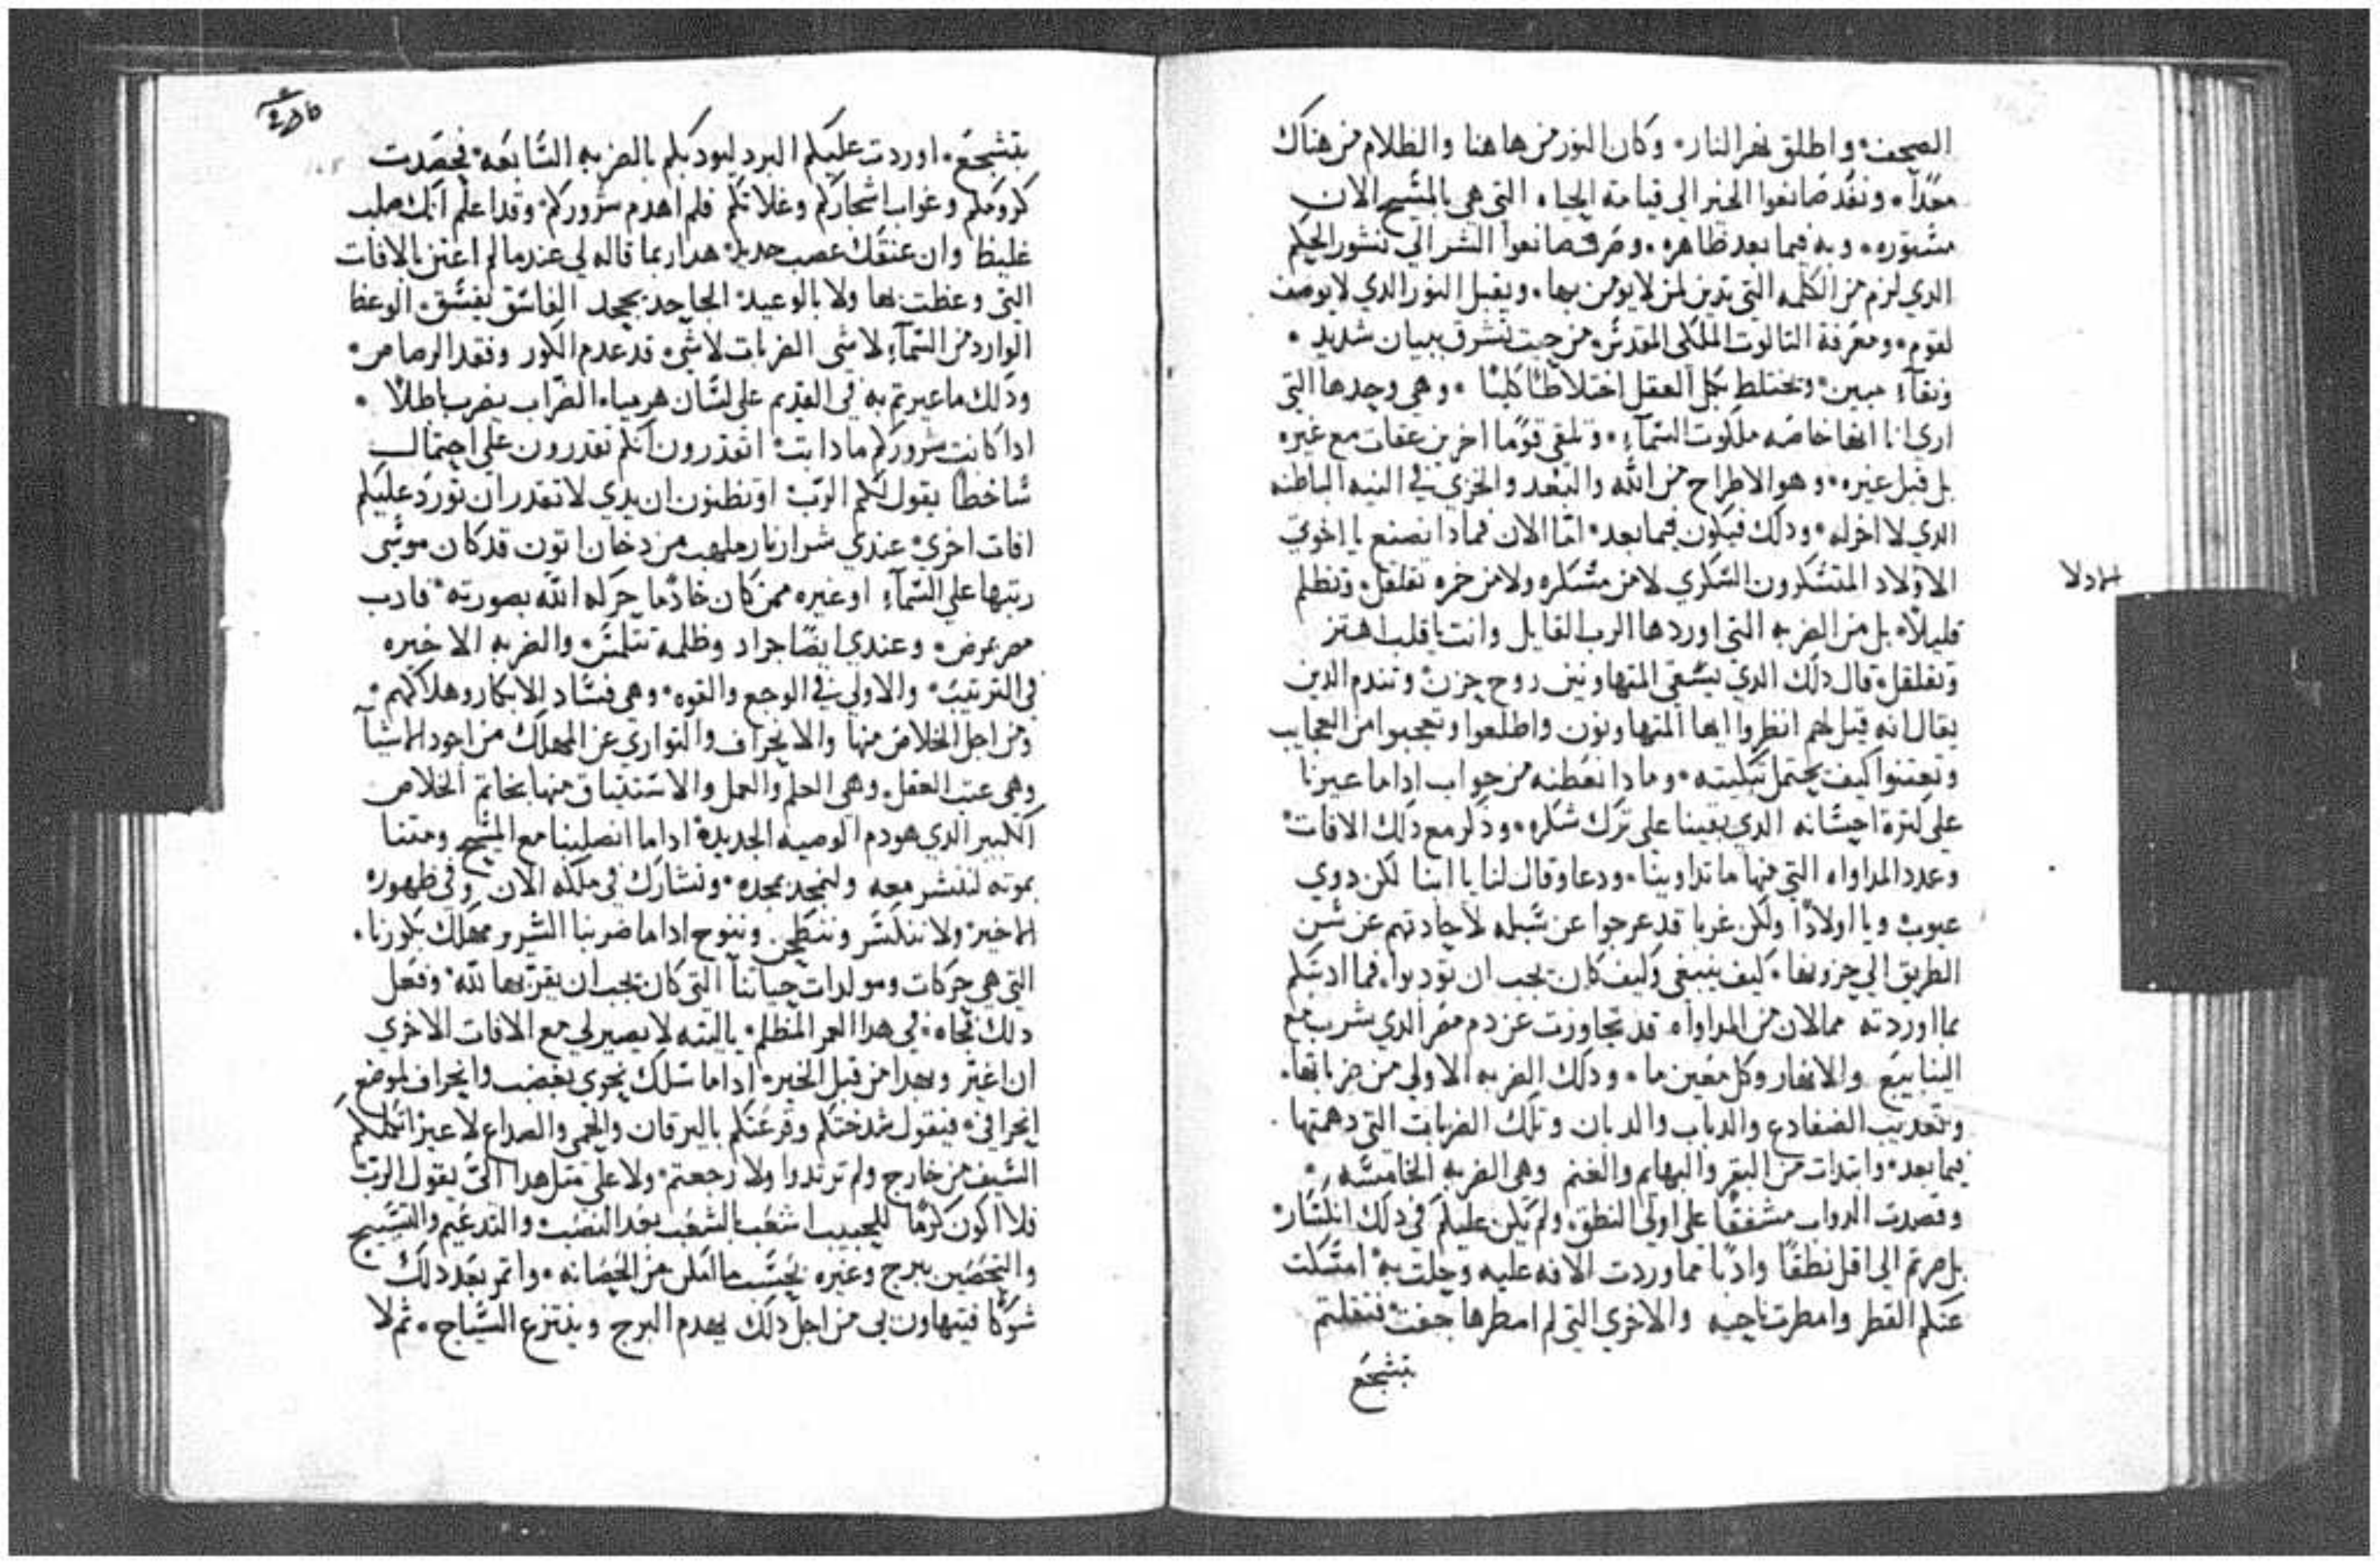 الصحف، واطلق نهر النار، وكان النور من هاهنا والظلام من هناك
معدّاً، ونفد صانعوا الخير الى قيامة الحياه التي هي بالمسيح الان
مستوره، وبه فيما بعد ظاهره، وصرف صانعوا الشر الي نشور الحكم
الدي لزم من الكلمه التي تدين لمن لا يومن بها، ويقبل النور الدي لا يوصف
لقوم، ومعرفة التالوت الملكى المقدس، من حيت تشرق ببيان شديد،
ونقآءٍ مبين، وتختلط بكل العقل اختلاطاً كليّا، وهي وحدها التي
اري انا انها خاصه ملكوت السمآءِ، وتلقي قومًا اخرين عقابات مع غيره
بل قبل غيره، وهو الاطراح من الله والبعد والخزي في النيه الباطنه
الدي لا اخر له، ودلك فيكون فيما بعد، امّا الان فمادا نصنع يا اخوتي
الاولاد المتسكرون السكري لا من مسكره ولا من خمره تقلقل، وتظلم
قليلاً، بل من الضربه التي اوردها الرب القايل وانت يا قلب اهتز
وتقلقل، قال دلك الدي يسقي المتهاونين روح حزن وتندم الدين
يقال انه قيل لهم انظروا ايها المتهاونون واطلعوا وتعجبوا من العجايب
وتعتنوا كيف يحتمل تبكيته، وما دا نعطيه من جواب اداما عيرنا
علي كترة احسانه الدي بقينا علي ترك شكره، ودكر مع دلك الافات
وعدد المداواه التي منها ما تداوينا، ودعا وقال لنا يا ابنا لكن دوي
عيوب ويا اولادًا ولكن غربا قد عرجوا عن سبله لاجادتهم عن سنن
الطريق الي حزونها، كيف ينبغي وكيف كان يجب ان تودبوا، فما ادبتكم
بما اوردته مما لان من المداواه قد تجاوزت عن دم مصر الدي شرب مع
الينابيع والانهار وكل معين ما، ودلك الضربه الاولي من ضرباتها،
وتعديب الضفادع والدباب والدبان وتلك الضربات التي دهمتها
فيما بعد، وابتدات من البقر والبهايم والغنم وهى الضربه الخامسه،
وقصدت الدواب مشفقًا على اولى النطق، ولم يكن عليكم في دلك انكسار
بل صرتم الى اقل نطقًا وادبًا مما وردت الافه عليه وحلت به، امسكت
عنكم القطر وامطرت ناحيه والاخري التي لم امطرها جفت، فقلتم
بتشجع
الاولا
بتشجع، اوردت عليكم البرد ليودبكم بالضربه السابعه، فحصدت
كرومكم وغواب اشجاركم وغلاتكم فلم اهدم شروركم، وقد اعلم انك صلب
غليظ وان عنقك عصب حديد، هدا ربما قاله لي عندما لم اعتن بالافات
التي وعظت بها ولا بالوعيد، الجاحد يجحد الفاسق يفسق، الوعظ
الوارد من السمآءِ لا شى الضربات لا شي، قد عدم الكور وفقد الرصاص،
ودلك ما عيرتم به في القديم على لسان هرمياه، الضراب يضرب باطلاً،
ادا كانت شروركم ما دابت، اتقدرون انكم تقدرون علي احتمالي
ساخطًا يقول لكم الربّ، او تظنون ان يدي لا تقدر ان تورد عليكم
افات اخري، عندي شرار نار ملهب من دخان اتون قد كان موسى
رتبها على السمآءِ او غيره ممن كان خادمًا حركه الله بصورته، فادب
مصر بمرض، وعندي ايضًا جراد وظلمه تتلمس، والضربه الاخيره
في الترتيب، والاولي في الوجع والقوه، وهى فساد الابكار وهلاكهم،
ومن اجل الخلاص منها والانحراف والتواري عن المهلك من اجود الاشيآ
وهي عتب العقل، وهي العلم والعمل والاستيتاق منها بخاتم الخلاص
الكبير الدي هو دم الوصيه الجديده، اداما انصلبنا مع المسيح ومتنا
بموته لننشر معه ولنمجد بمجده، ونشارك في ملكه الان وفي ظهوره
الاخير، ولا ننكسر وننطحن وننوح اداما ضربنا الشرير مهلك بكورنا،
التي هي حركات ومولدات حياتنا التي كان يجب ان يقرّبها لله، وفعل
دلك تجاه، في هدا العمر المظلم، يا ليته لا يصير لي مع الافات الاخري
ان اعير وبهدا من قبل الخير، اداما سلك نحوي بغضب وانحراف لموضع
انحرافي، فيقول شدختكم وقرعتكم باليرقان والحمى والصداع لا غير اتكلكم
السيف من خارج ولم ترتدوا ولا رجعتم، ولا على متل هدا الىّ يقول الربّ
فلا اكون كرمًا للحبيب اشعب بالشعب بعد النصب، والتدعيم والتسييج
والتحصين ببرج وغيره بحسب ما امكن من الحصانه، واتمر بعد دلك
شوكًا فيتهاون بي من اجل دلك يهدم البرج وينتزع السياج، تم لا